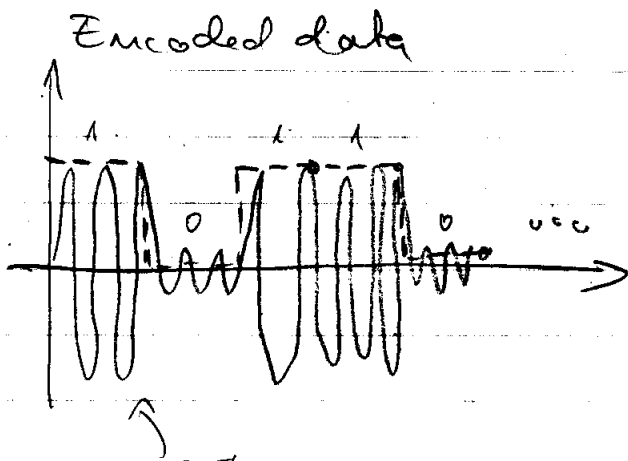 Encoded data
1 1 1
0 0 ...